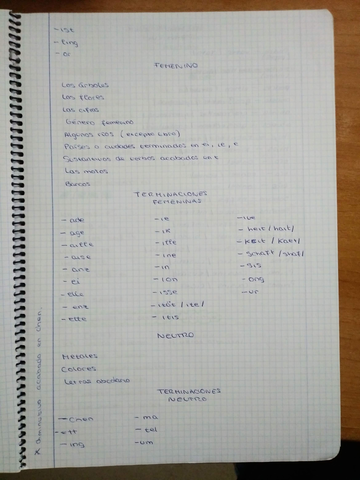 - ist
- ling
- or
FEMENINO
Los árboles
Las flores
Las cifras
Género femenino
Algunos ríos (excepto
Países o ciudades terminadas en ei, ie, e
Sustantivos de verbos acabados en t
Las motos
Barcos
TERMINACIONES
FEMENINAS
- ade - ie - ive
- age - ik - heit / hait /
- aille - ille - keit / kait /
- aise - ine - schaft / shaf /
- anz - in - sis
- ei - ion - ung
- elle - isse - ur
- enz - ität / ite /
- ette - itis
NEUTRO
Metales
Colores
Letras abecedario
TERMINACIONES
NEUTRO
- chen - ma
- ett - tel
- ing - um
* Diminutivo acabado en chen.